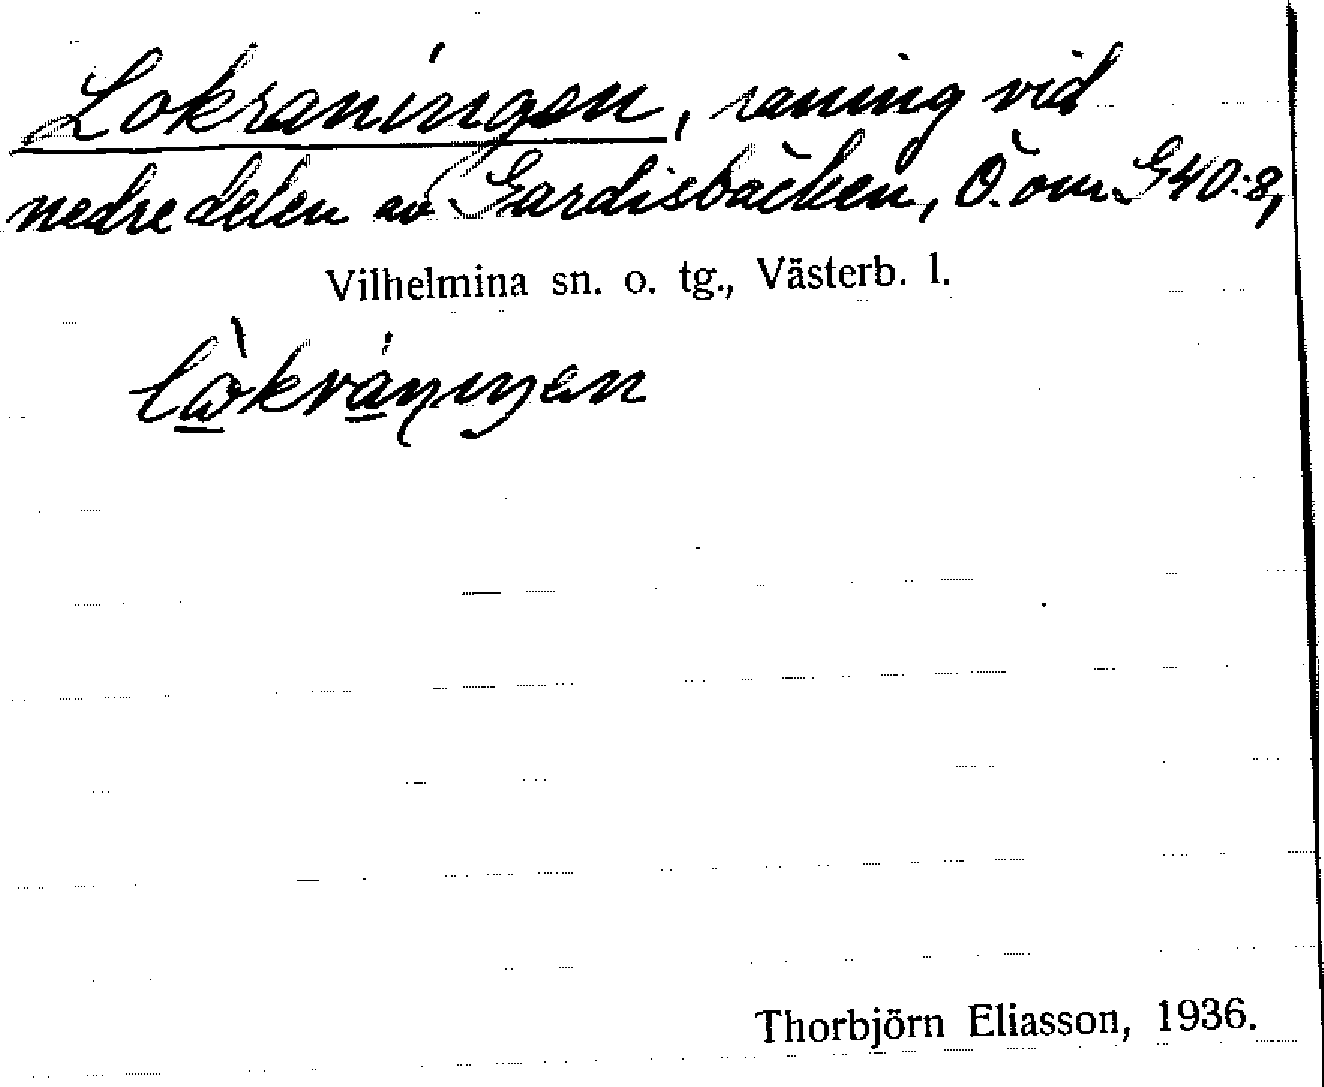 Lokraningen, raning vid
nedre delen av Gardisbäcken, Ö. om G40:8,
Vilhelmina sn. o. tg., Västerb. l.
Thorbjörn Eliasson, 1936.